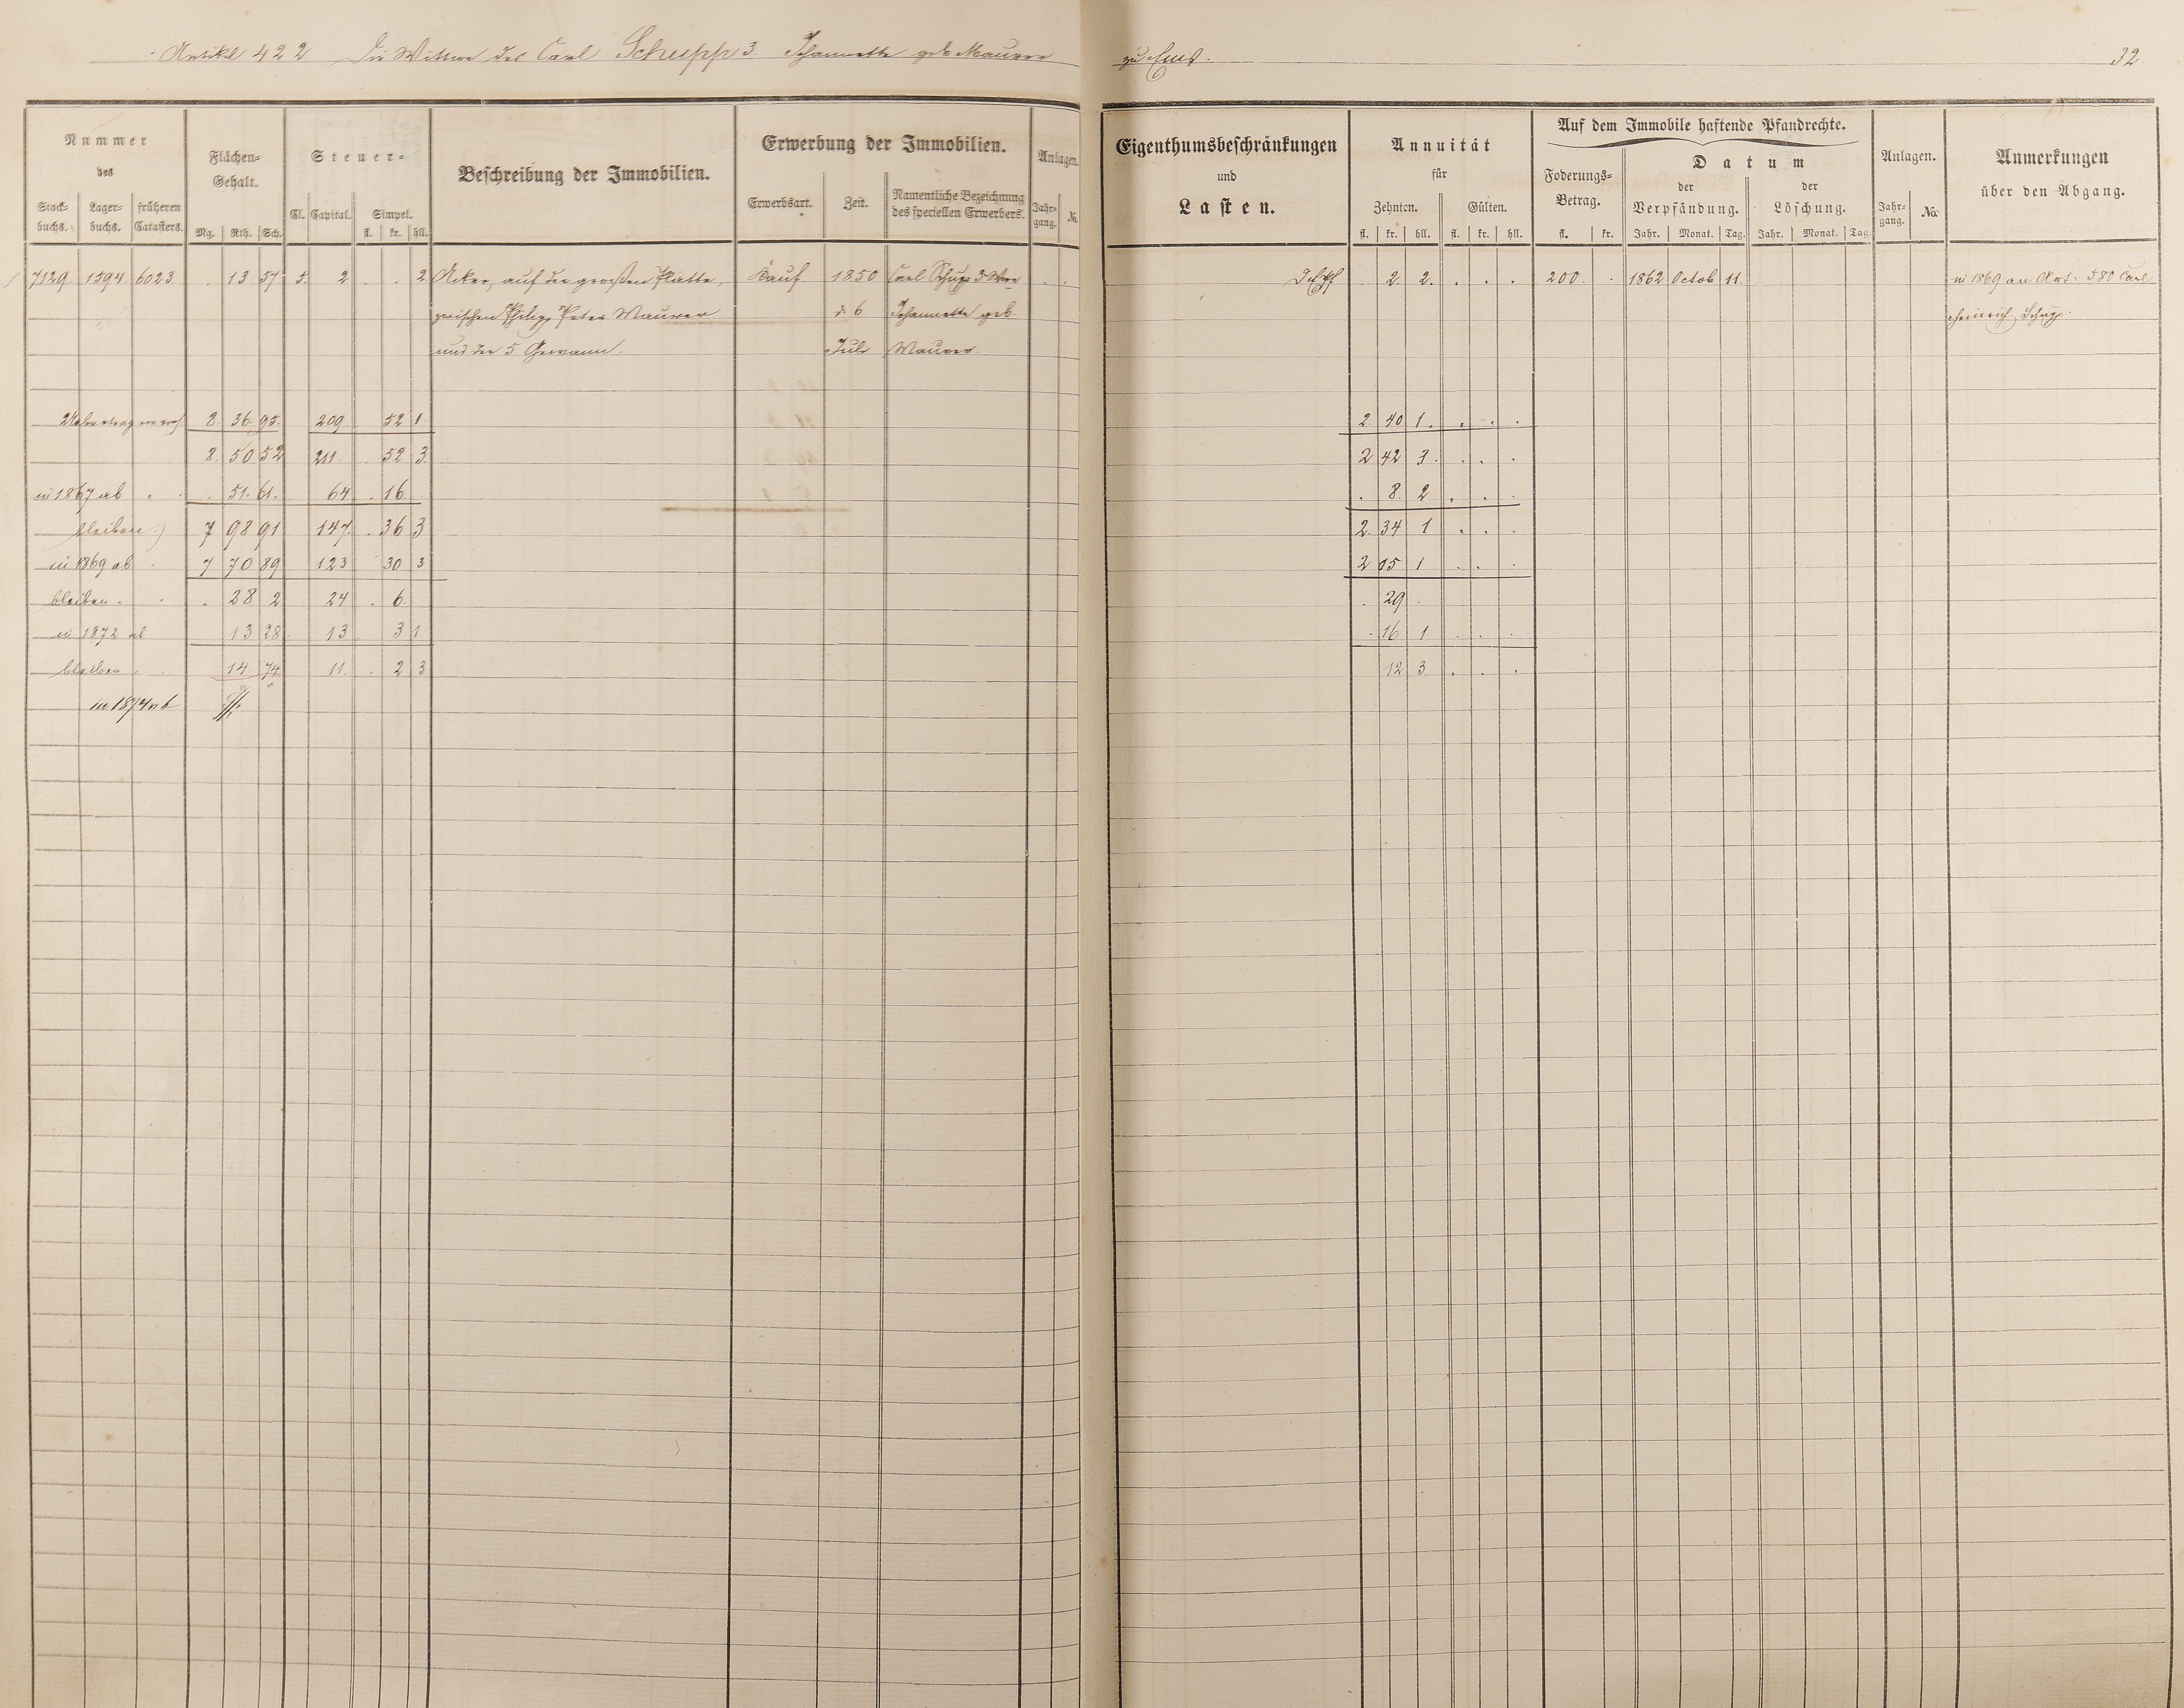 Artikel 422 Die Wittwe des Carl Schupp 3. Johannette geb. Maurer zu Ems.
32
Nummer des
Stockbuchs. Lagerbuchs. früheren Catasters.
Flächen-Gehalt.
Mg. Rth. Sch.
Steuer-
Cl. Capital. Simpel.
fl. kr. hll.
Beschreibung der Immobilien.
Erwerbung der Immobilien.
Erwerbsart. Zeit. Namentliche Bezeichnung des speciellen Erwerbers.
Anlagen.
Jahrgang. No.
Eigenthumsbeschränkungen und Lasten.
Annuität für
Zehnten. Gülten.
fl. kr. hll. fl. kr. hll.
Auf dem Immobile haftende Pfandrechte.
Foderungs-Betrag.
fl. kr.
Datum
der Verpfändung. der Löschung.
Jahr. Monat. Tag. Jahr. Monat. Tag.
Anlagen.
Jahrgang. No.
Anmerkungen über den Abgang.
7129. 1594. 6023 . 13 57 5. 2 . . 2 Acker, auf der großen Platte, Kauf 1850 Carl Schupp 3 Wwe . . 2. 2. . . . 200. . 1862 Octob 11. in 1869 an Art. 580 Carl
zwischen Philipp Peter Maurer d. 6 Johannette geb. Heinrich Schupp.
und der 5 Gewann. Juli Maurer.
8. 36. 95. 209. 52 1 2. 40 1. . . .
8. 50 52 211. . 52 3 2 42 3. . . .
in 1867 ab . . . 51. 61. 64 . 16 . 8. 2 . . .
bleiben 7 98 91 147. . 36 3 2. 34 1 . . .
in 1869 ab . 7 70 89 123 30 3 2 15 1 . . .
bleiben . . . 28 2 24 . 6. . 29 .
in 1872 ab 13 28 13 3 1 . 16 1 . . .
bleiben . . 14 74 11. . 2 3 12 3 . . .
in 1874 ab